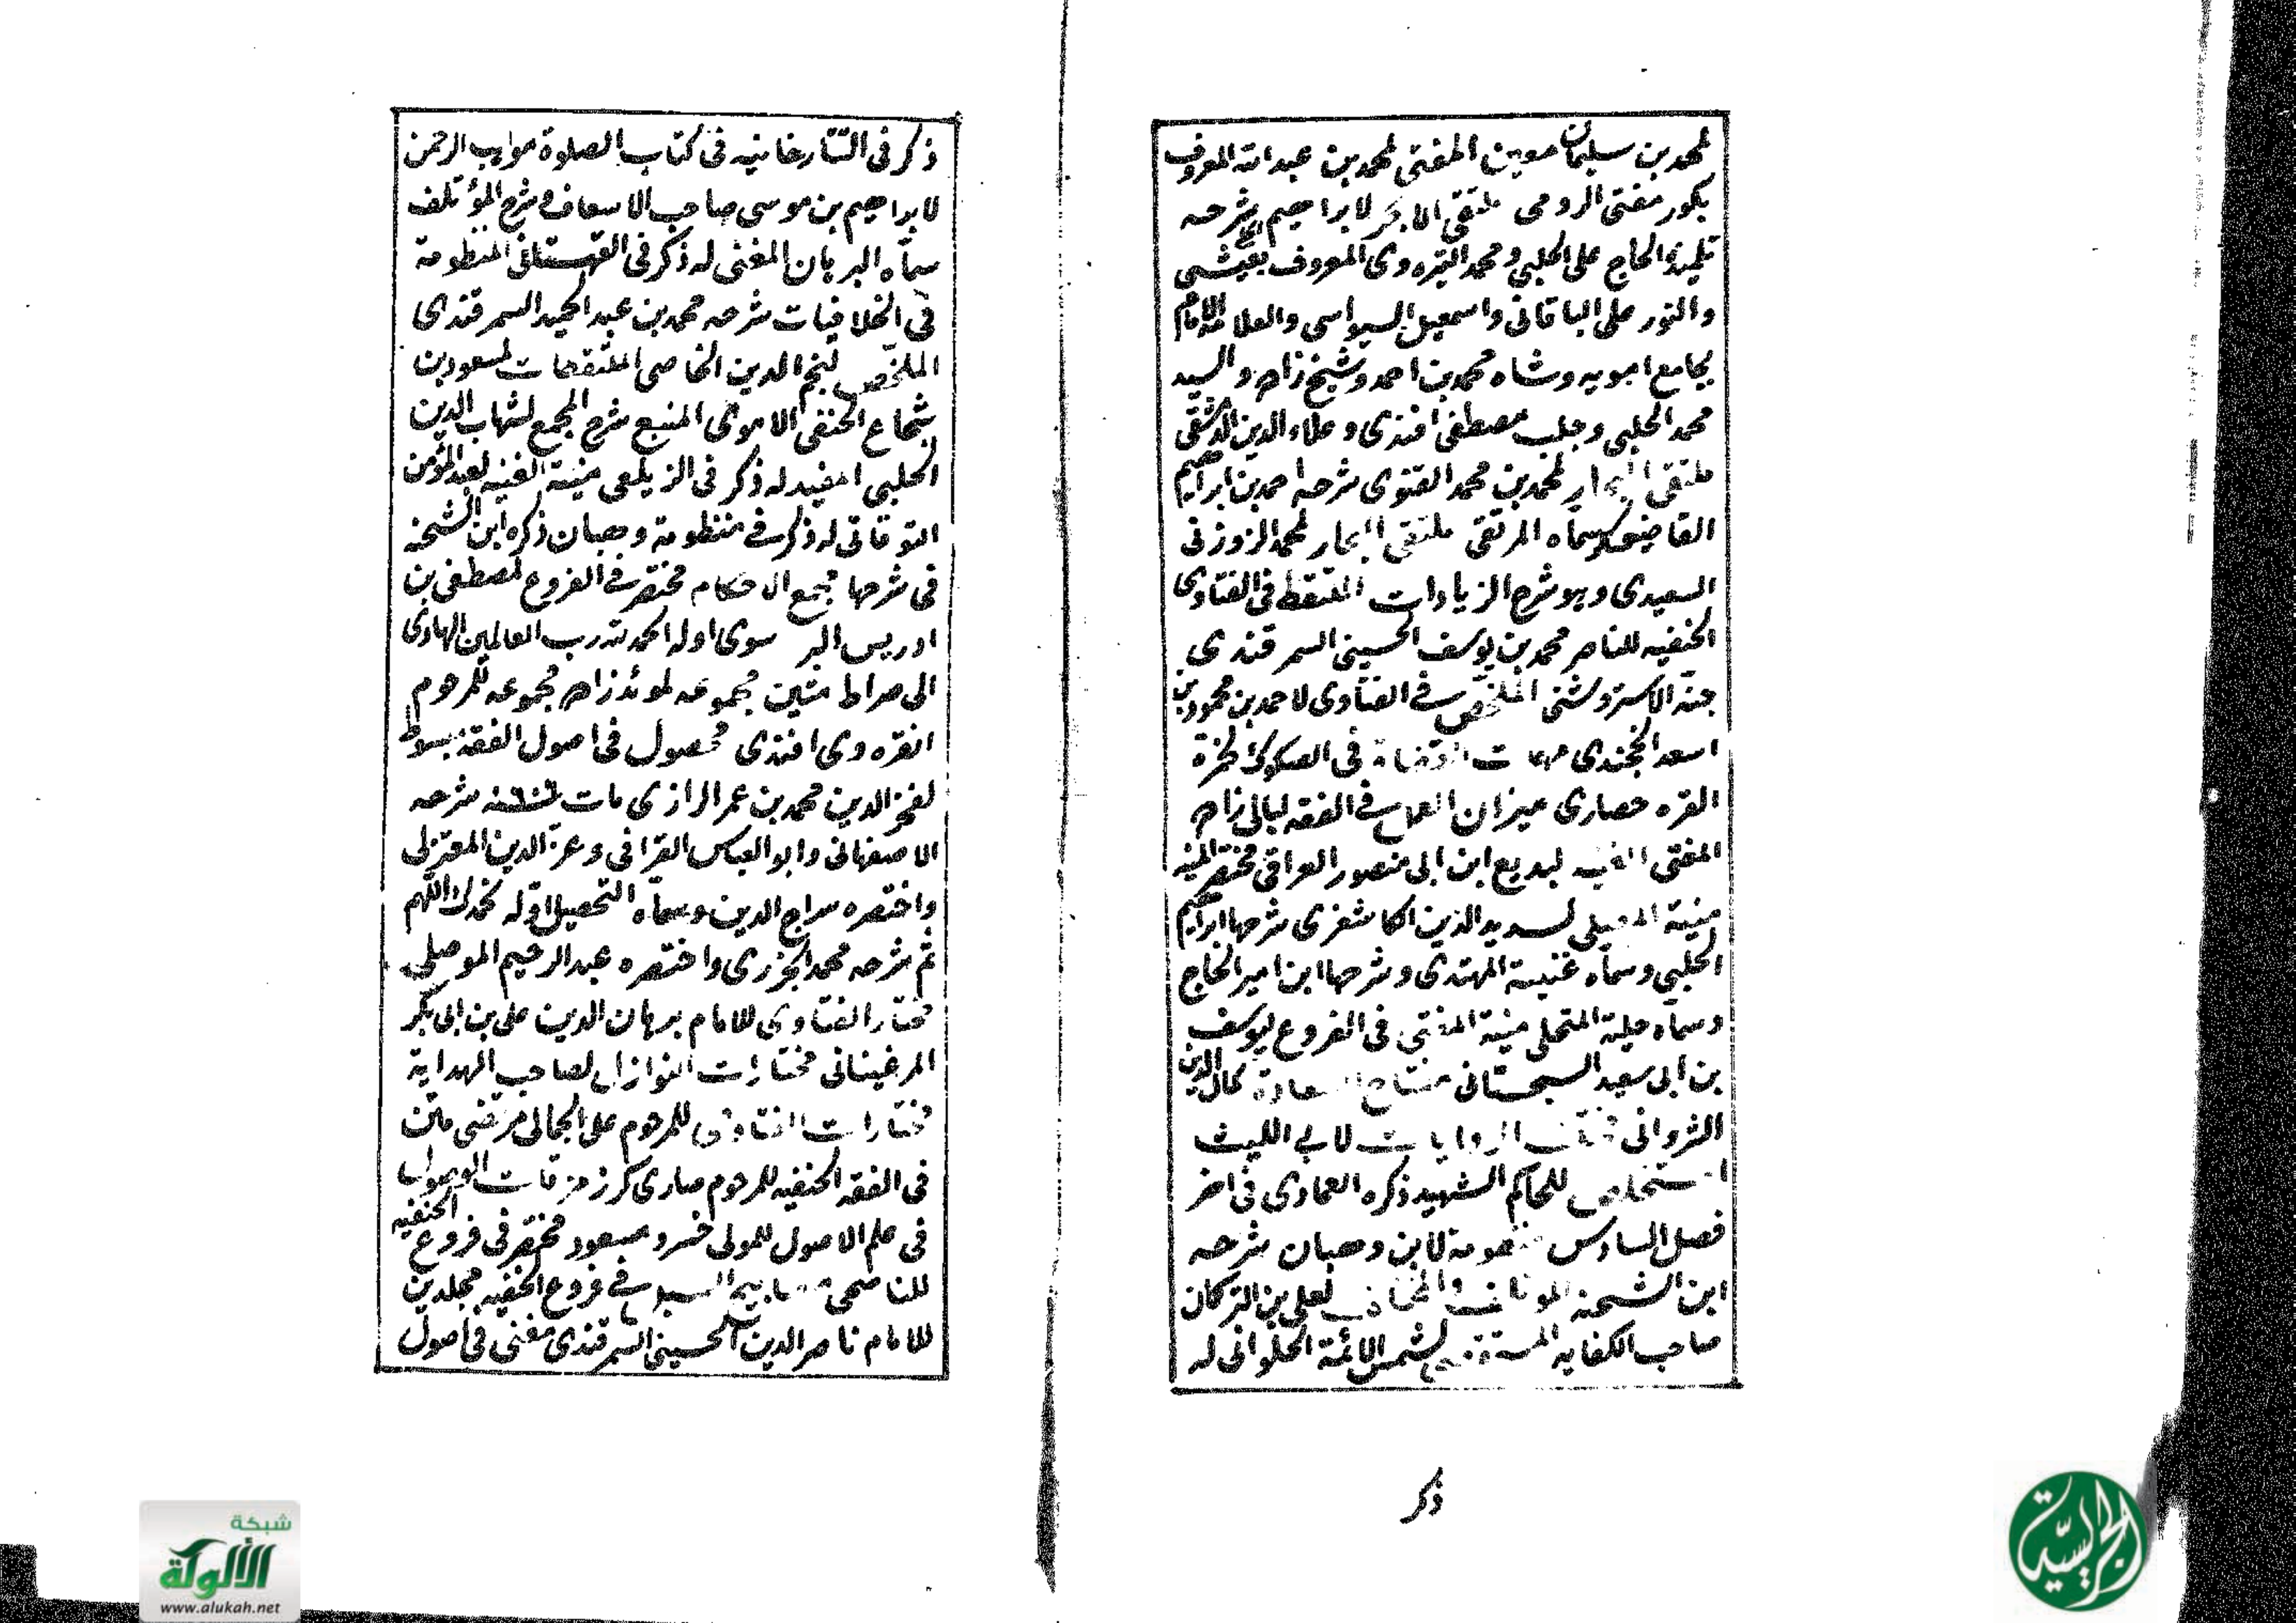 لمحمد بن سليمان معين المفتى لمحمد بن عبد الله المعروف
بكور مفتى الرومى ملتقى الابحر لابراهيم شرحه
تلميذه الحاج على الحلبى ومحمد التيره وى المعروف بعيشى
والنور على الباقانى واسمعيل السيواسى والعلامه الامام
بجامع امويه وشاه محمد بن احمد وشيخ زاده والسيد
محمد الحلبى وجلب مصطفى افندى وعلاء الدين الدمشقى
ملتقى البحار لمحمد بن محمد القنوى شرحه احمد بن ابراهيم
القاضى وسماه المرتقى ملتقى البحار لمحمد الزوزنى
السعيدى وهو شرح الزيادات الملتقط فى الفتاوى
الحنفيه للناصر محمد بن يوسف الحسينى السمرقندى
الاستروشنى الملخص فى الفتاوى لاحمد بن محمود بن
اسعد الخجندى مهمات القضاة فى الصكوك لحمزة
القره حصارى ميزان فى الفقه لبالى زاده
المفتى لبديع ابن ابى منصور العراقى مختصر المنيه
منية المصلى لسديد الدين الكاشغرى شرحها ابراهيم
الحلبى وسماه غنيية المهتدى وشرحها ابن امير الحاج
وسماه حلية المتحلى منية المفتى فى الفروع ليوسف
بن ابى سعيد السجستانى مفتاح السعادة كمال الدين
الشروانى مختلف الروايات لابى الليث
المستخلص للحاكم الشهيد ذكره العمادى فى اخر
فصل السادس منظومة لابن وهبان شرحه
ابن الشحنه الموتلف والمختلف لعلى بن التركمان
صاحب الكفايه لشمس الائمة الحلوانى له
ذكر
ذكر فى التتارخانيه فى كتاب الصلوة مواهب الرحمن
لابراهيم بن موسى صاحب الاسعاف وشرح المؤتلف
سماه البرهان المغنى له ذكر فى القهستانى المنظومة
فى الخلافيات شرحه محمد بن عبد الحميد السمرقندى
الملخص لنجم الدين الخاصى لمسعود بن
شجاع الحنفى الاموى المنبع شرح المجمع لشهاب الدين
الحلبى المفيد له ذكر فى الزيلعى منية الغنيه لعبد المؤمن
التوقاتى له ذكر فى منظومة وهبان ذكره ابن الشحنه
فى شرحها مجمع الاحكام مختصر فى الفروع لمصطفى بن
ادريس سوى اوله الحمد لله رب العالمين الهادى
الى صراط متين مجموعه لموئد زاده مجموعه للمرحوم
انقره وى افندى محصول فى اصول الفقه مبسوط
لفخر الدين محمد بن عمر الرازى مات ٦٠٦ سنه شرحه
الاصفهانى وابو العباس القرافى وعز الدين المعتزلى
واختصره سراج الدين وسماه التحصيل اوله نحمدك اللهم
ثم شرحه محمد الجزرى واختصره عبد الرحيم الموصلى
مختار الفتاوى للامام برهان الدين على بن ابى بكر
المرغينانى مختارات النوازل لصاحب الهداية
مختارات الفتاوى للمرحوم على الجمالى مرتضى متن
فى الفقه الحنفيه للمرحوم صارى كرز مرقات الوصول
فى علم الاصول للمولى خسرو مسعود مختصر فى فروع الحنفيه
للناصحى مصابيح السبل فى فروع الحنفيه مجلدين
للامام ناصر الدين الحسينى السمرقندى مغنى فى اصول
شبكة
الألوكة
www.alukah.net